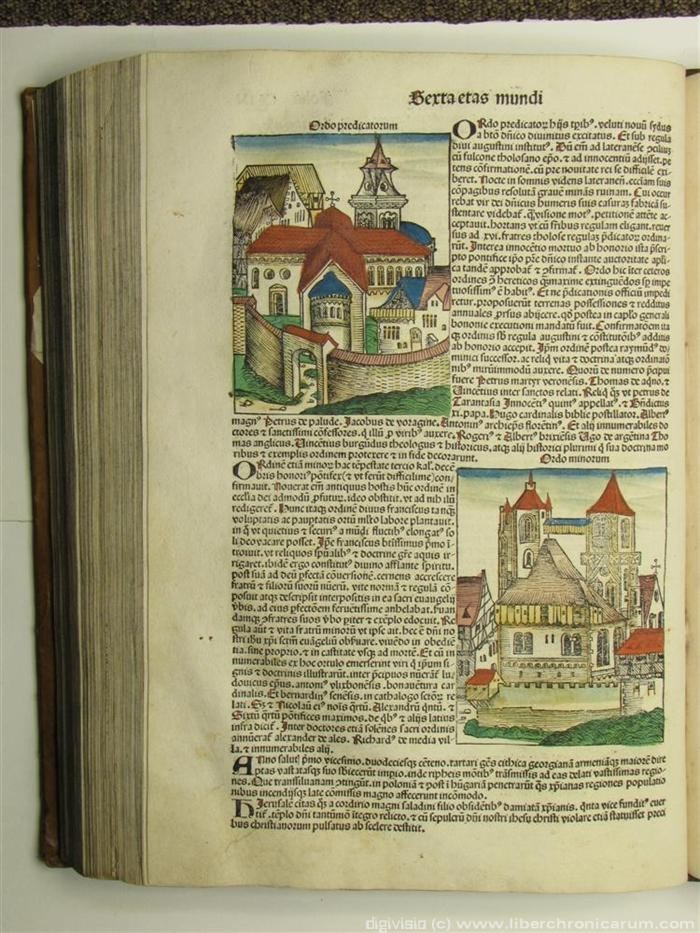 Sexta etas mundi
Ordo predicatorum
ORdo predicatoꝝ hijs tꝑibꝰ. veluti nouū sydus
a bt̄o dn̄ico diuinitus excitatus. Et sub regula
diui augustini institutꝰ. Dū em̄ ad lateranēse ↄciliuȝ
cū fulcone tholosano ep̄o. ⁊ ad innocentiū adijsset. pe
tens cōfirmationē. cū pre nouitate rei se difficilē exi
beret. Nocte in somnis videns lateranen̄. ecciam suis
cōpagibus resolutā grauē minās ruinam. Cui occur
rebat vir dei dn̄icus humeris suis casuraȝ fabricā su
stentare videbaꝭ. q̄ visione motꝰ. petitionē attēte ac
ceptauit. hortans vt cū fr̄ibus regulam eligant. reuer
sus ad .xvi. fratres tholose regulaȝ p̄dicatoꝝ ordina
rūt. Interea innocētio mortuo ab honorio
pontifice
ordines ↄ̄ hereticos q̄maxime extinguēdos
tuosissimꝰ ē habitꝰ. Et ne p̄dicationis officiū impedi
retur. proposuerūt terrenas possessiones ⁊ redditus
annuales ꝓrsus abijcere. qd̄ postea in capl̄o generali
bononie executioni mandatū fuit. Confirmatōem ita
qȝ ordinis sb̄ regula augustini ⁊ cōstitutōibꝰ additis
ab honorio accepit. Ip̄m ordinē postea raymūdꝰ do
minici successor. ac reliq̄ vita ⁊ doctrina atqȝ ordinatō
nibꝰ mirūimmodū auxere. Quorū de numero p̄cipui
fuere Petrus martyr veronēsis. Thomas de aq̄no. ⁊
Vincētius inter sanctos relati. Reliq̄ qͦꝫ vt petrus de
Tarantasia Innocētiꝰ quintꝰ appellatꝰ. ⁊ Bn̄dictus
xi. papa. Hugo cardinalis biblie postillator. Albertꝰ
magnꝰ Petrus de palude. Jacobus de voragine. Antoninꝰ archiep̄s florētin̄. Et alij innumerabiles do
ctores ⁊ sanctissimi cōfessores. q̄ illū ꝓ viribꝰ auxere. Rogerꝰ ⁊ Albertꝰ brixiēsis Vgo de argētina Tho
mas anglicus. Vincētius burgūdus theologus ⁊ historicus. atqȝ alij historici plurimi q̄ sua doctrina mo
ribus ⁊ exemplis ordinem protexere ⁊ in fide decorarunt.
Ordo minorum
ORdinē etiā minoꝝ hac tēpestate tercio kal̄. decē
bris honoriꝰ pōtifex (⁊ vt ferūt difficilime) con
firmauit. Nouerat em̄ antiquus hostis hūc ordinē in
ecclīa dei admodū ꝓfuturꝫ. ideo obstitit. vt ad nih ilū
redigeret̄. Hunc itaqȝ ordinē diuus franciscus tanqȝ
voluptatis ac paupertatis ortū
in q̄ vt quietius ⁊ securiꝰ a mūdi fluctibꝰ elongatꝰ so
li deo vacare posset. Ip̄e franciscus btīssimus p̄mo ī
troiuit. vt reliquos sp̄ualibꝰ ⁊ doctrine gr̄e aquis ir
rigaret. ibidē ergo constitutꝰ diuino afflante spiritu.
post suā ad deū ꝑfectā cōuersionē. cernens accrescere
fratrū ⁊ filiorū suorū nūerū. vite normā ⁊ regulā cō
posuit atqȝ descripsit interpositis in ea sacri euangelij
v̄bis. ad eius ꝑfectōem feruētissime anhelabat. Suan
damqȝ ↄfratres suos v̄bo ꝑiter ⁊ exēplo edocuit. Re
gula aūt ⁊ vita fratrū minorū
stri ihu xp̄i sctm̄ euāgeliū obseruare. viuēdo in obediē
tia. sine proprio. ⁊ in castitate vsqȝ ad mortē. Et cū in
numerabiles ex hoc ortulo emerserint viri q̄ ip̄um si
gnis ⁊ doctrinis illustrarūt. inter p̄cipuos nūerāꝭ lu
douicus ep̄us. antoniꝰ vlixbonēsis. bonauētura car
dinalis. Et bernardinꝰ senēsis. in cathalogo sctōꝝ re
lati. Sȝ ⁊ Nicolaū
Sixtū q̄rtū pōtifices maximos. de qͥbꝰ ⁊ alijs latius
infra dicit̄. Inter doctores etiā solēnes sacri ordinis
annūeraꝭ alexander de ales. Richardꝰ de media vil
la. ⁊ innumerabiles alij.
ANno salutꝭ p̄mo vicesimo. duodeciesqȝ cēteno. tartari gēs cithica georgianā armeniāqȝ maiorē dire
ptas vastatasqȝ suo sbiecerūt impio. inde ripheis mōtibꝰ trāsmissis ad eas delati vastissimas regio
nes. Que transsiluanam ↄtingūt. in poloniā ⁊ post ī hūgariā penetrarūt qͣs xp̄ianas regiones populatio
nibus incendijsqȝ late cōmissis magno affecerunt incōmodo.
HIerusalē citās q̄s a cordirio magni saladini filio obsidētibꝰ damiatā xp̄ianis. qͥnta vice fundit
tē̄plo dn̄i tantūmō itegro relicto. ⁊ cū sepulcrū dn̄i nostri ihesu christi violare etiā statuisset preci
bus christianorum pulsatus ab scelere destitit.
digivisio (c) www.liberchronicarum.com